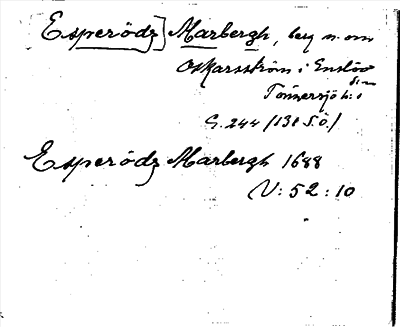 Esperödz] Marbergh, beg n. om
Oskarsström i Enslöv
sn
Tönnersjö h:d
G. 244 /131 S.Ö./
Esperödz Marbergh 1688
V: 52 : 10